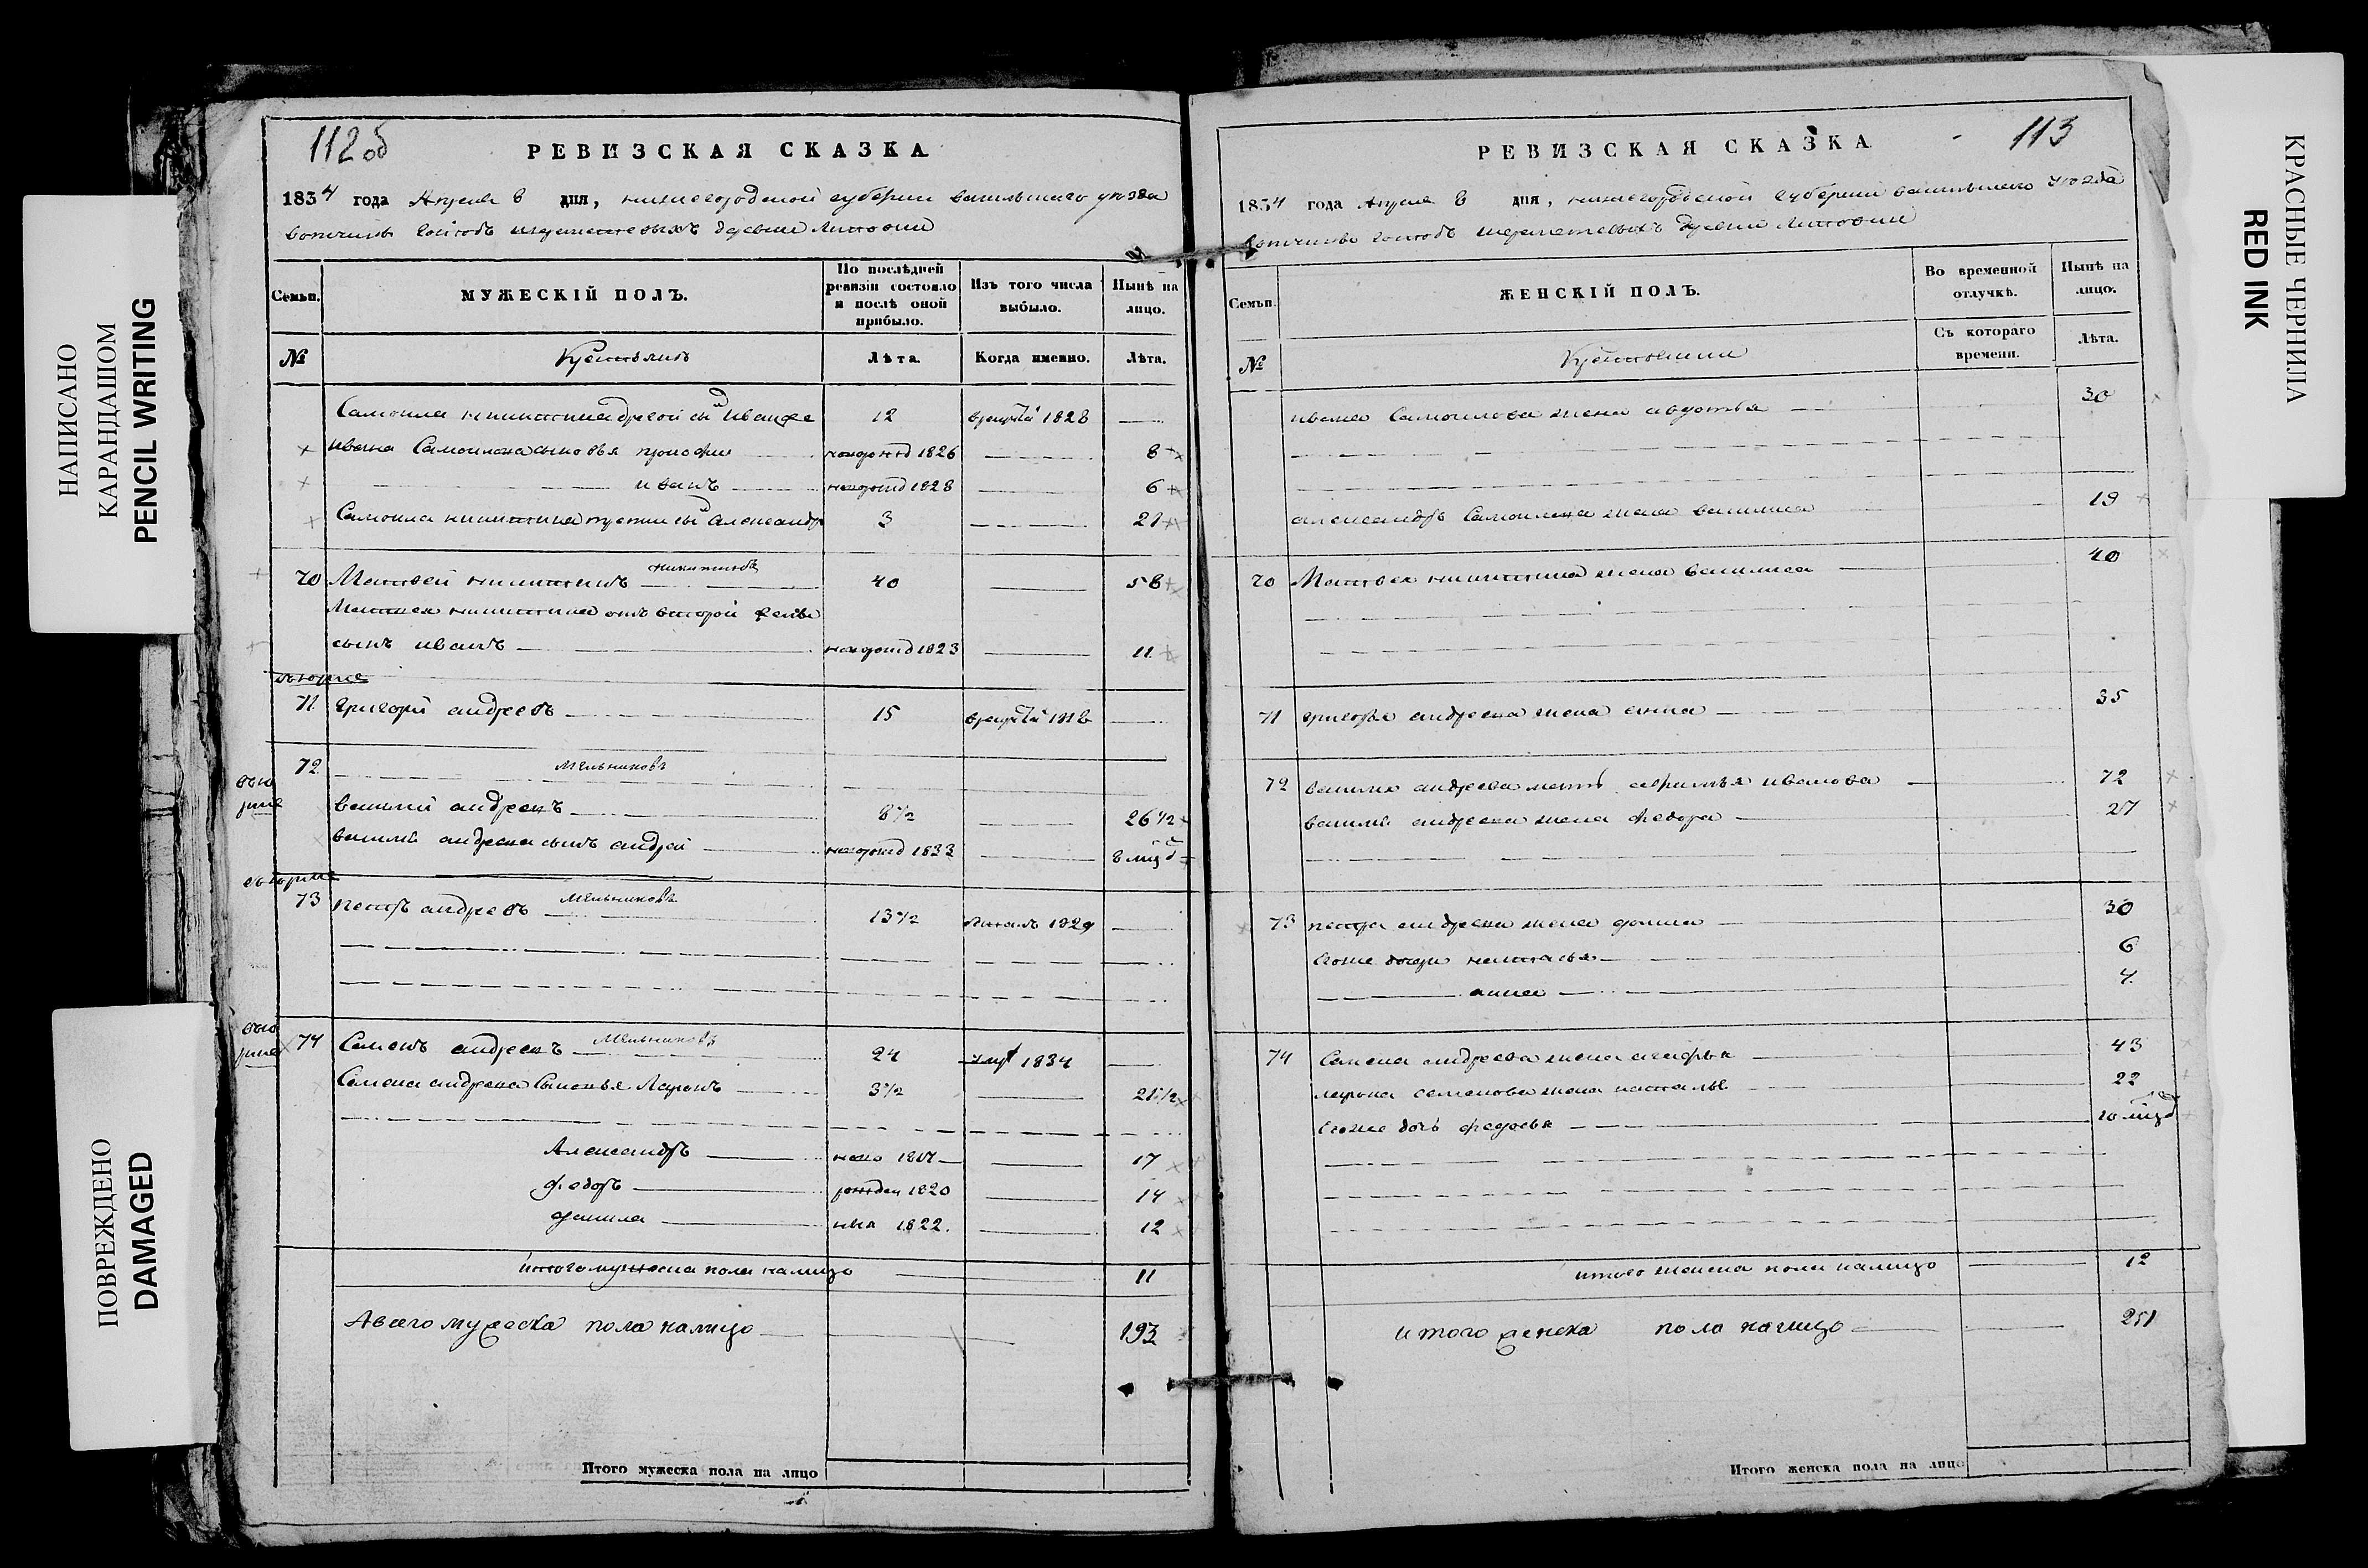 НАПИСАНО
КАРАНДАШОМ
PENCIL WRITING
ПОВРЕЖДЕНО
DAMAGED
112 об
РЕВИЗСКАЯ СКАЗКА
1834 года Апреля 8 дня, нижегородской губернии васильскаго уезда
вотчины господъ шереметевыхъ деревни
Семьи.
МУЖЕСКІЙ ПОЛЪ.
По послѣдней ревизіи состояло и послѣ оной прибыло.
Изъ того числа выбыло.
Нынѣ на лицо.
№
Лѣта.
Когда именно.
Лѣта.
Самоила никитина другой сы иван 12 1828
ивана Самоилова сыновья 1826 8
иванъ 1828 6
Самоила никитина третий сы александр 3 21
70 Матвей никитинъ никитинъ 40 58
Матвея никитина отъ второй жены
сынъ иванъ 1823 11
71 григорій андреевъ 15
72 Мельниковъ
василий андреевъ 8 1/2 26 1/2
василья андреева сынъ андрей 1833
73 петръ андреевъ Мельниковъ 13 1/2 1829
74 Семенъ андреевъ Мельниковъ 24 1834
Семена андреева сыновья Ларионъ 3 1/2 21 1/2
Александръ 1817 17
федоръ 1820 14
данила 1822. 12
итого мужеска пола налицо 11
А всего мужеска пола налицо 193
Итого мужеска пола на лицо
113
РЕВИЗСКАЯ СКАЗКА
1834 года Апреля 8 дня, нижегородской губернии васильскаго уезда
вотчины господъ шереметевыхъ деревни
Семьи.
ЖЕНСКІЙ ПОЛЪ.
Во временной отлучкѣ.
Нынѣ на лицо.
№
Съ котораго времени.
Лѣта.
ивана Самоилова жена авдотья 30
александръ Самоилова жена василиса 19
70 Матвея никитина жена василиса 40
71 григорья андреева жена анна 35
72 василья андреева мать иванова 72
василья андреева жена федора 27
73 петра андреева жена 30
его же дочери наталья 6
анна 4
74 Семена андреева жена агафья 43
лариона семенова жена наталья 22
его же дочь федосья 10
итого женска пола налицо 12
итого женска пола налицо 251
Итого женска пола на лицо
КРАСНЫЕ ЧЕРНИЛА
RED INK